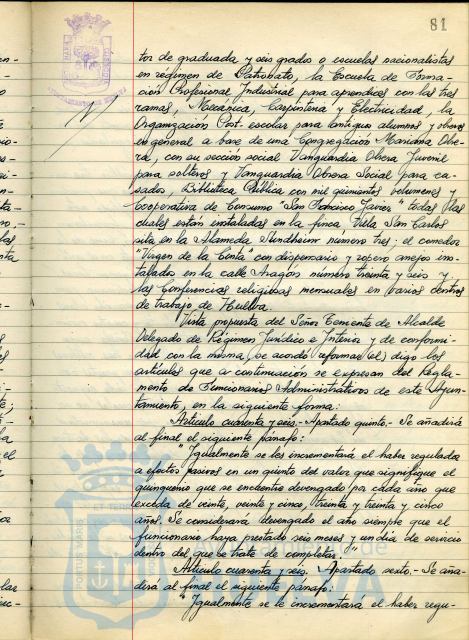 81
tor de graduada y seis grados o escuelas nacionalistas
en régimen de Patrobato, la Escuela de Forma-
ción Profesional Industrial para aprendices con las tres
ramas, Mecánica, Carpintería y Electricidad, la
Organización Post-escolar para antiguos alumnos y obreros
en general a base de una Congregación Mariana Obre-
ra, con su sección social Vanguardia Obrera Juvenil
para solteros y Vanguardia Obrera Social para ca-
sados, Biblioteca Pública con mil quinientos volúmenes y
Cooperativa de Consumo "San Francisco Javier" todas las
cuales están instaladas en la finca, Villa San Carlos
sita en la Alameda Sundheim número tres; el comedor
"Virgen de la Cinta" con dispensario y ropero anejos ins-
talados en la calle Aragón número treinta y seis y
las Conferencias religiosas mensuales en varios centros
de trabajo de Huelva.
Vista propuesta del Señor Teniente de Alcalde
Delegado de Régimen Jurídico e Interior y de conformi-
dad con la misma, se acordó reformar (el) digo los
artículos que a continuación se expresan del Regla-
mento de Funcionarios Administrativos de este Ayun-
tamiento, en la siguiente forma:
Artículo cuarenta y seis.- Apartado quinto.- Se añadirá
al final el siguiente párrafo:
"Igualmente se les incrementará el haber regulador
a efectos pasivos en un quinto del valor que signifique el
quinquenio que se encuentre devengado por cada año que
exceda de veinte, veinte y cinco, treinta y treinta y cinco
años. Se considerará devengado el año siempre que el
funcionario haya prestado seis meses y un día de servicio
dentro del que se trate de completar."
Artículo cuarenta y seis. Apartado sexto.- Se aña-
dirá al final el siguiente párrafo:
"Igualmente se le incrementará el haber regu-